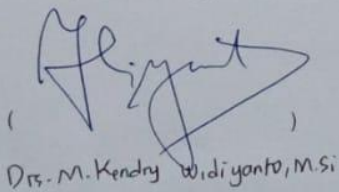 ( )
Drs. M. Kendry Widiyanto, M.Si